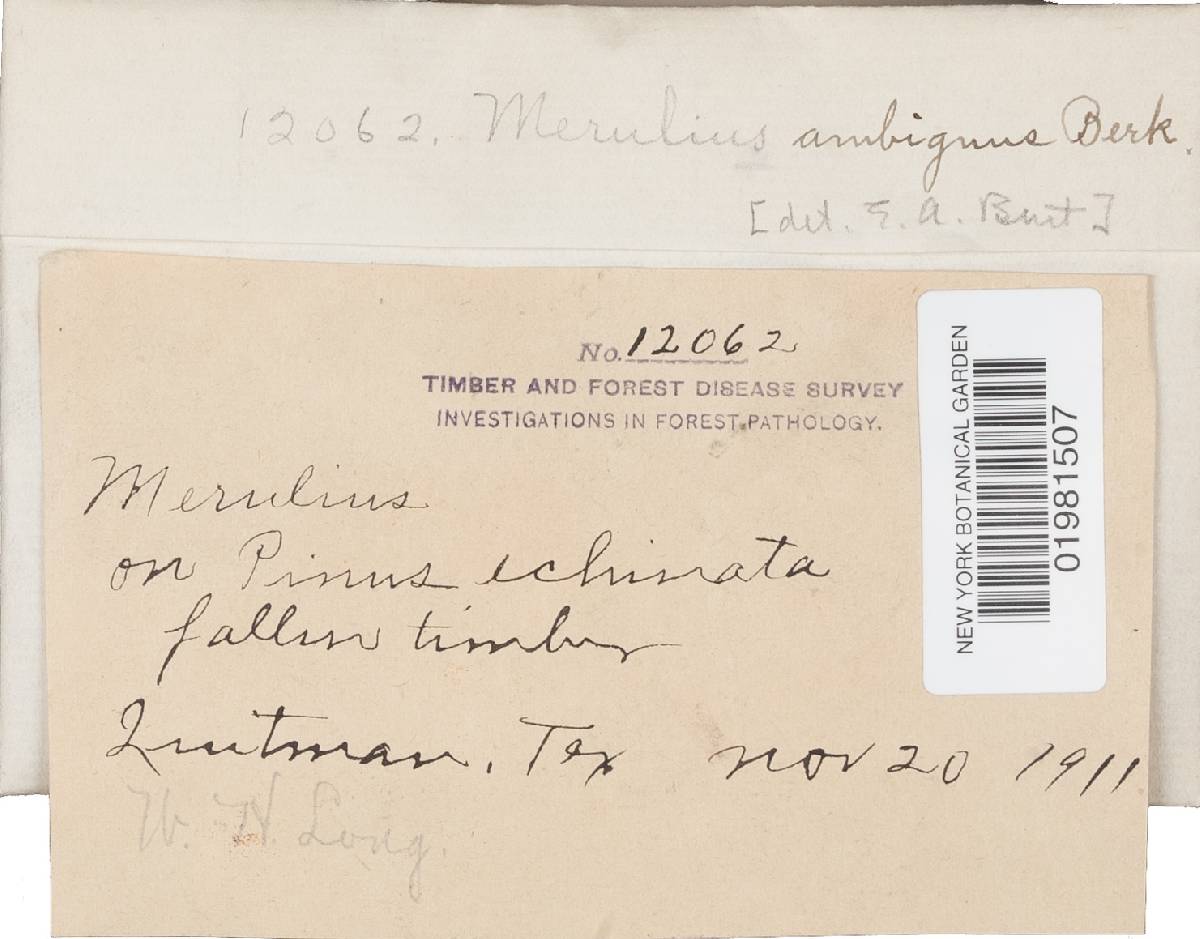 12062. Merulius ambiguus Berk.
[det. E. A. Burt]
No. 12062
TIMBER AND FOREST DISEASE SURVEY
INVESTIGATIONS IN FOREST PATHOLOGY.
Merulius
on Pinus echinata
fallen timber
Quitman, Tex Nov 20 1911
W. H. Long.
NEW YORK BOTANICAL GARDEN
01981507